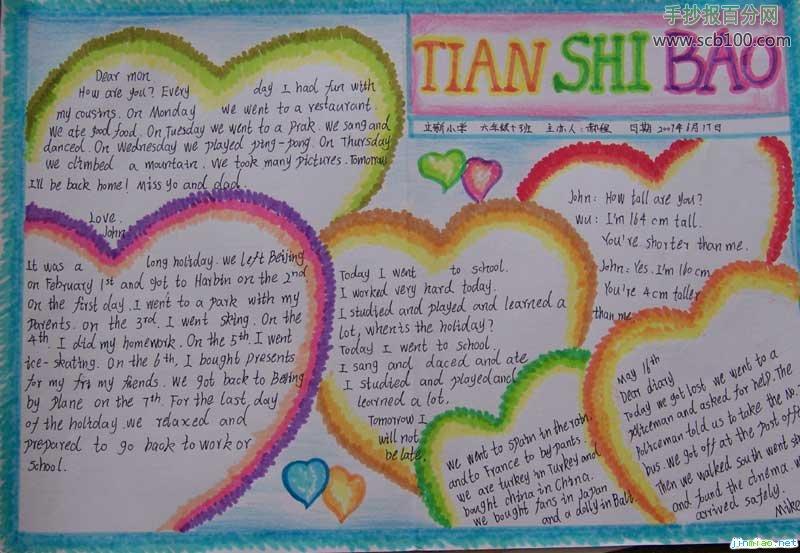 手抄报百分网
www.scb100.com
TIAN SHI BAO
小学 六年级十班 主办人: 日期 2007年6月17日
Dear mom
How are you? Every day I had fun with
my cousins. On Monday we went to a restaurant.
We ate good food. On Tuesday we went to a prak. We sang and
danced. On Wednesday we played ping-pong. On Thursday
we climbed a mountain. We took many pictures. Tomorrow
I'll be back home! Miss yo and dad.
Love.
John
It was a long holiday. we left Beijing
on February 1st and got to Harbin on the 2nd
on the first day. I went to a park with my
parents. on the 3rd, I went skiing. On the
4th I did my homework. On the 5th, I went
ice-skating. On the 6th, I bought presents
for my fri my friends. we got back to Beijing
by plane on the 7th. For the last, day
of the holiday. we relaxed and
prepared to go back to work or
school.
Today I went to school.
I worked very hard today.
I studied and played and learned a
lot, when's the holiday?
Today I went to school.
I sang and daced and ate
I studied and played and
learned a lot.
Tomorrow I
will not
be late.
John: How tall are you?
Wu: I'm 164 cm tall.
You're shorter than me.
John: Yes. I'm 160 cm
You're 4 cm taller
than me
we went to Spain in the rain.
and to France to by pants.
we are turkey in Turkey and
bought china in China.
we bought fans in Japan
and a dolly in Bali.
May 16th
Dear diary
Today we got lost we went to a
policeman and asked for help. The
policeman told us to take the no.
bus. we got off at the post offi
Then we walked south went st
and found the cinema. w
arrived safely.
Mike
jinmiao.net